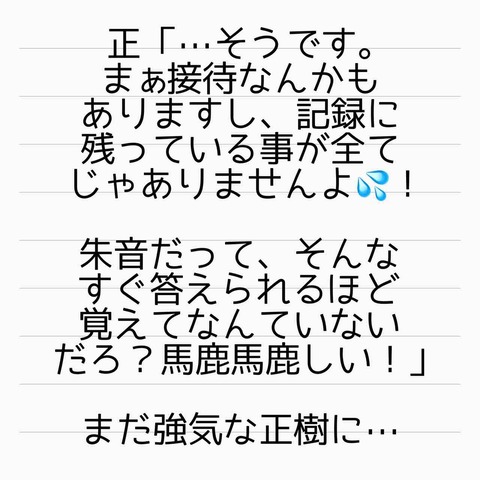 正「…そうです。
まぁ接待なんかも
ありますし、記録に
残っている事が全て
じゃありませんよ💦！
朱音だって、そんな
すぐ答えられるほど
覚えてなんていない
だろ？馬鹿馬鹿しい！」
まだ強気な正樹に…